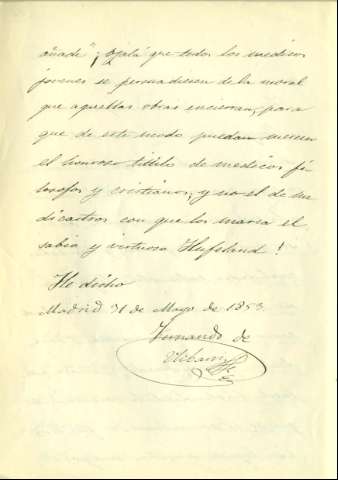 añade", ¡Ojalá que todos los medicos
jovenes se persuadiesen de la moral
que aquellas obras encierran, para
que de este modo puedan merecer
el honroso titulo de medicos fi
losofos y cristianos, y no el de me
dicastros con que los marca el
sabio y virtuoso Hufeland!
He dicho
Madrid 31 de Mayo de 1853.
Fernando de
Ulibarri